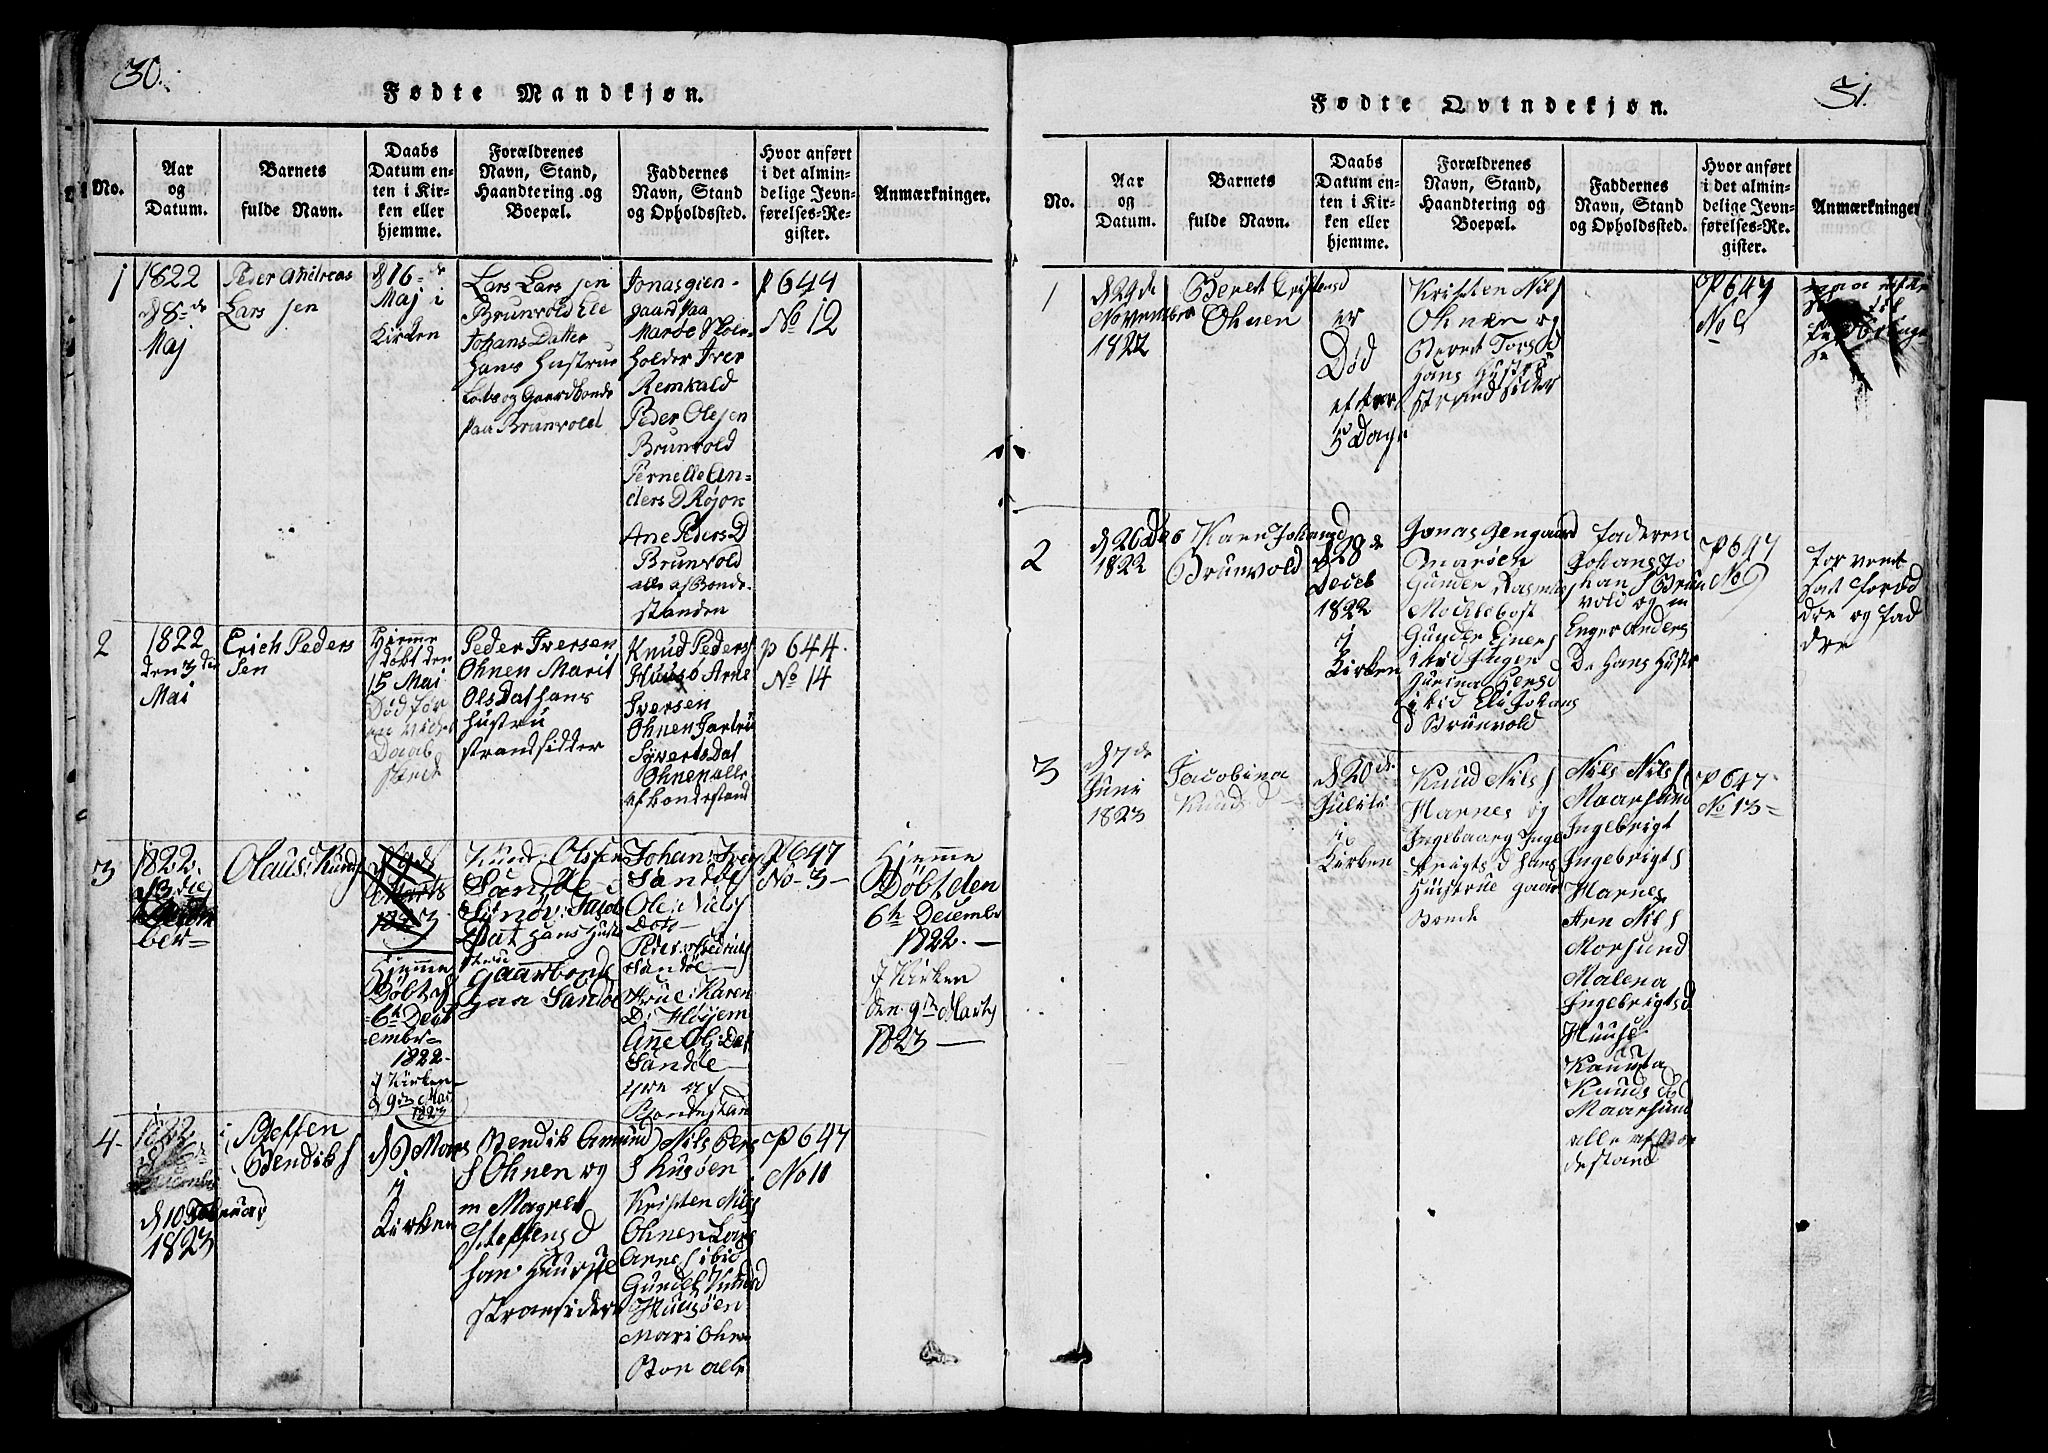 30.
Fødte Mandkjøn.
No.
Aar
og
Datum.
Barnets
fulde Navn.
Daabs
Datum en-
ten i Kir-
ken eller
hjemme.
Forældrenes
Navn, Stand,
Haandtering og
Boepæl.
Faddernes
Navn, Stand
og Opholdssted.
Hvor anført
i det almin-
delige Jevn-
førelses-Re-
gister.
Anmærkninger.
1
1822
d 8de
Maj
Peder Andreas
Lars sen
d 16de
Maj i
Kirken
Lars Lars sen
Brunvold Ele
Johans Datter
Hans Hustrue
og Gaardbonde
paa Brunvold
Jonas gien-
gaard paa
Marøe Skole-
holder Iver
Remkald
Peder Olesen
Brunvold
Pernelle An-
ders D Røjor
Ane Peders D
Brunvold
alle af Bonde-
standen
P 644
No 12
2
1822
den 3die
Mai
Erich Peders
sen
Hjeme
døbt den
15 Mai
Død før
Daab
Peder Iversen
Ohnen Marit
Ols Dat hans
Hustru
strandsidder
Knud Peders
Huusø Arne
Iversen
Ohnen
Siverts Dat
Ohnen alle
af bondestand
P 644.
No 14
3
1822.
13 die
ber
Olaus: Knuds
Marts
1823
Hjemme
Døbt d
6te Dec
ember
1822.
J Kirken
d 9de Mar
1823
Knud: Olssen
Sandøe
Sinøv: Jacob
Dat hans Hust
strue
Gaarbonde
paa Sandøe
Johan: Ivers
Sandøe
Ole: Niels
Peder: Fredrichs
Sandøe
Frue: Karen
D:
Anne Ols: Dat
Sandøe
af
Bondestand
P 647
No 3
Hjemme
Døbt den
6te December
1822.
J Kirken
den 9de Marts
1823
4
d 10 Februar
1823
Steffen
Bendiks
d 9 Mars
i
Kirken
Bendik Amund
s Ohnen og
m Magret
Steffens d
han Huustrue
stransidere
Nils Pers
Husøen
Kristen Nils
Ohnen Lars
Arnes ibid
Gundel Knudsd
Huusøen
Mari Ohnen
Bon alle
P 647
No 11
31.
Fødte Qvindekjøn.
No.
Aar
og
Datum.
Barnets
fulde Navn.
Daabs
Datum en-
ten i Kir-
ken eller
hjemme.
Forældrenes
Navn, Stand,
Haandtering og
Boepæl.
Faddernes
Navn, Stand
og Opholdssted.
Hvor anført
i det almin-
delige Jevn-
førelses-Re-
gister.
Anmærkninger
1
d 24de
November
1822
Beret Cristensd
Ohnen
er
Død
efter
5 Dage
Kristen Nils
Ohnen og
Beret Torsd
hans Hustru
strandsider
P 647
No
2
d 26 Des
1822
Karn Johansd
Brunvold
d 28de
Deceb
1822
i
Kirken
Jonas Gengaard
Marøen
Gunder Rasmus
Mochlebost
Gunder Ejners
ibid Ingen
ibid Eli Johans
d Brunvold
faderen
Johans Jo
han s Brun
vold og m
Enger Anders
D hans Hustr
P 647
No 9
forvent
sat foræl
dre og fad
dre
3
d 7de
Juni
1823
Jacobina
Knuds d
d 20de
Juli
i
Kirken
Knud Nils
Harnes og
Ingebaarg Inge
brigts d hans
Huistrue gaar
Bonde
Nils Nils
Maarsund
Ingebrigt
Ingebrigts
Harnes
Arn Nils
Morsund
Malena
Ingebrigtsd
Huuse
Knuds d
Maarsund
alle af Bon
destand
P 647
No 13